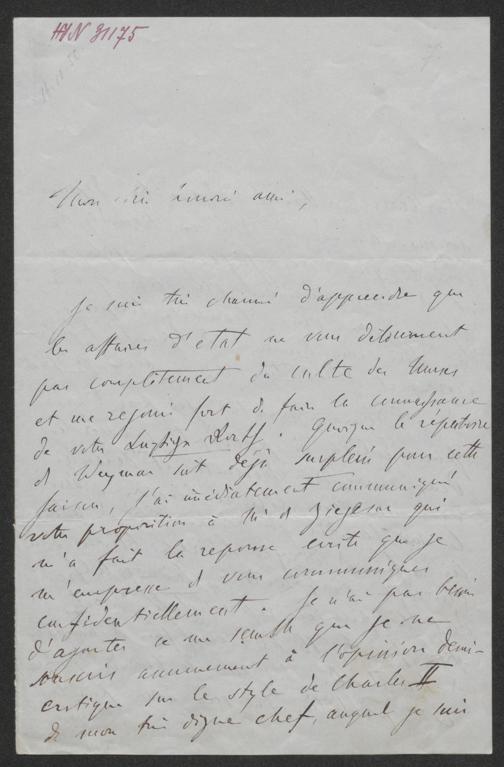 HJN 31175
Mon très honoré ami,
Je suis très charmé d'apprendre que
les affaires d'état ne vous détournent
pas complètement du culte des Muses
et me réjouis fort de faire la connaissance
de votre. Quoique le répertoire
d Weymar soit déjà surplein pour cette
saison, j'ai immédiatement communiqué
votre proposition à Mr d Ziegesar qui
m'a fait la réponse ecrite que je
m'empresse d vous communiquer
confidentiellement. Je n'ai pas besoin
d'ajouter ce me semble que je ne
souscris aucunement à l'opinion demi-
critique sur le style de Charles II
de mon très digne chef, auquel je suis